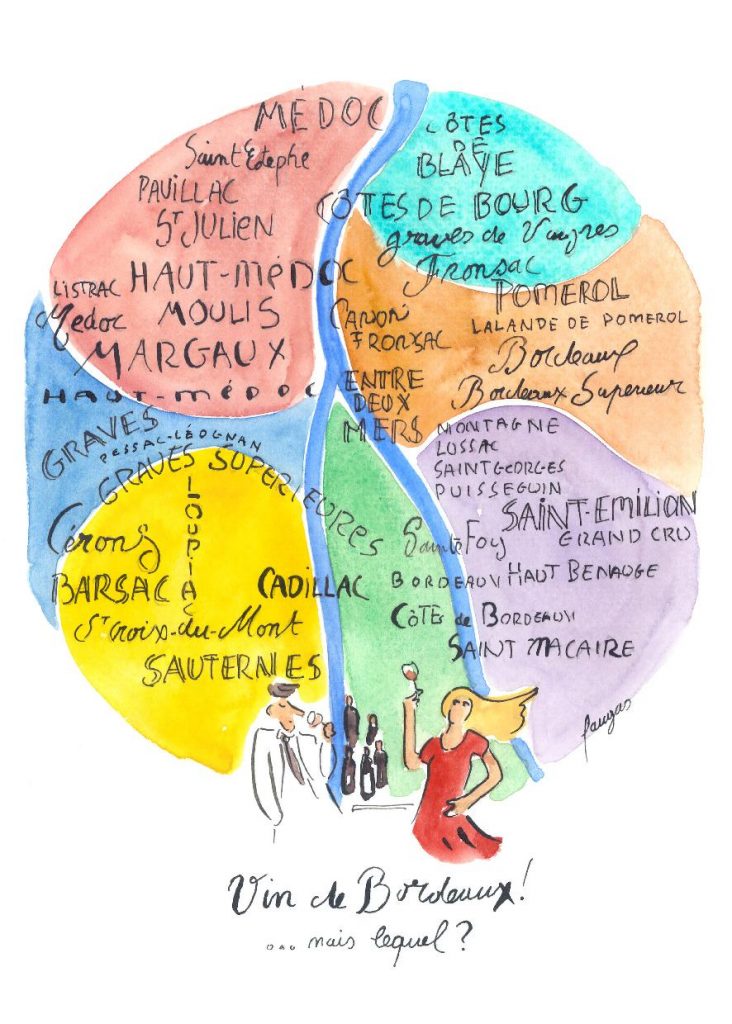 MÉDOC
Saint Estephe
PAUILLAC
St JULIEN
HAUT-MÉDOC
LISTRAC
Medoc
MOULIS
MARGAUX
HAUT-MÉDOC
CÔTES
DE
BLAYE
CÔTES DE BOURG
graves de Vayres
Fronsac
POMEROL
LALANDE DE POMEROL
CANON
FRONSAC
Bordeaux
Bordeaux Superieur
ENTRE
DEUX
MERS
MONTAGNE
LUSSAC
SAINT GEORGES
PUISSEGUIN
SAINT-EMILION
GRAND CRU
GRAVES
PESSAC-LÉOGNAN
GRAVES SUPERIEURES
LOUPIAC
Cérons
BARSAC
CADILLAC
St Croix-du-Mont
SAUTERNES
Sainte Foy
BORDEAUX HAUT BENAUGE
CÔTES de BORDEAUX
SAINT MACAIRE
fauzas
Vin de Bordeaux!
... mais lequel?